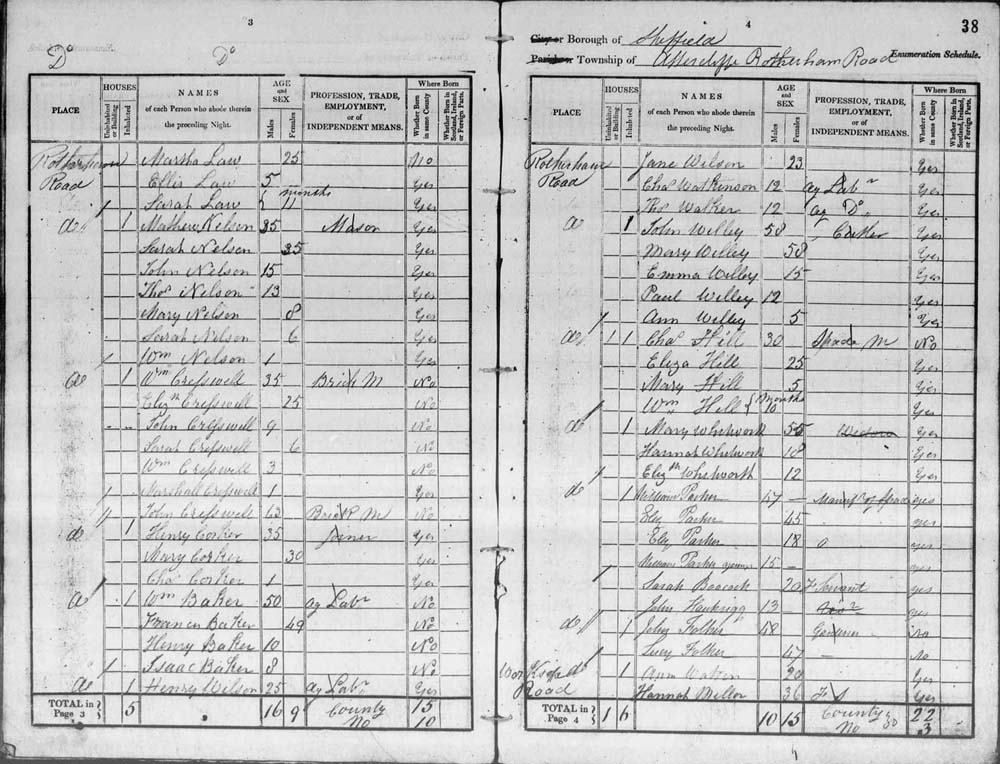 3
Do Do
PLACE HOUSES Uninhabited or Building Inhabited NAMES of each Person who abode therein the preceding Night. AGE and SEX Males Females PROFESSION, TRADE, EMPLOYMENT, or of INDEPENDENT MEANS. Where Born Whether Born in same County Whether Born in Scotland, Ireland, or Foreign Parts.
Rotherham Martha Law 25 No
Road Ellis Law 5 Yes
Sarah Law 11 months Yes
do 1 Mathew Nelson 35 Mason Yes
Sarah Nelson 35 Yes
John Nelson 15 Yes
Thos Nelson 13 Yes
Mary Nelson 8 Yes
Sarah Nelson 6 Yes
Wm Nelson 1 Yes
do 1 Wm Cresswell 35 Brick M No
Elizth Cresswell 25 No
John Cresswell 9 No
Sarah Cresswell 6 No
Wm Cresswell 3 No
Marshall Cresswell 1 Yes
John Cresswell 62 Brick M No
do 1 Henry Cosker 35 Joiner Yes
Mary Cosker 30 Yes
Chas Cosker 1 Yes
do 1 Wm Baker 50 Ag Labr No
Frances Baker 49 No
Henry Baker 10 No
Isaac Baker 8 No
do 1 Henry Wilson 25 Ag Labr Yes
TOTAL in Page 3 5 16 9 County 15
No 10
4
38
City or Borough of Sheffield
Parish or Township of Attercliffe Rotherham Road Enumeration Schedule.
PLACE HOUSES Uninhabited or Building Inhabited NAMES of each Person who abode therein the preceding Night. AGE and SEX Males Females PROFESSION, TRADE, EMPLOYMENT, or of INDEPENDENT MEANS. Where Born Whether Born in same County Whether Born in Scotland, Ireland, or Foreign Parts.
Rotherham Jane Wilson 23 Yes
Road Chas Watkinson 12 Ag Labr Yes
Thos Walker 12 Ag Do Yes
do 1 John Willey 58 Yes
Mary Willey 58 Yes
Emma Willey 15 Yes
Paul Willey 12 Yes
Ann Willey 5 Yes
do 1 1 Chas Hill 30 Spade M No
Eliza Hill 25 Yes
Mary Hill 5 Yes
Wm Hill 10 months Yes
do 1 Mary Whitworth 55 Widow Yes
Hannah Whitworth 18 Yes
Elizth Whitworth 12 Yes
do 1 William Parker 47 — Manuf of Spad yes
Eliz Parker 45 yes
Eliz Parker 18 yes
William Parker 15 — yes
Sarah Peacock 20 F Servant yes
John 13 — yes
do 1 John Folker 48 — Gardener No
Lucy Folker 47 — No
Worksop 1 Ann 20 Yes
Road Hannah Millor 36 F S Yes
TOTAL in Page 4 1 6 10 15 County 22
No 3